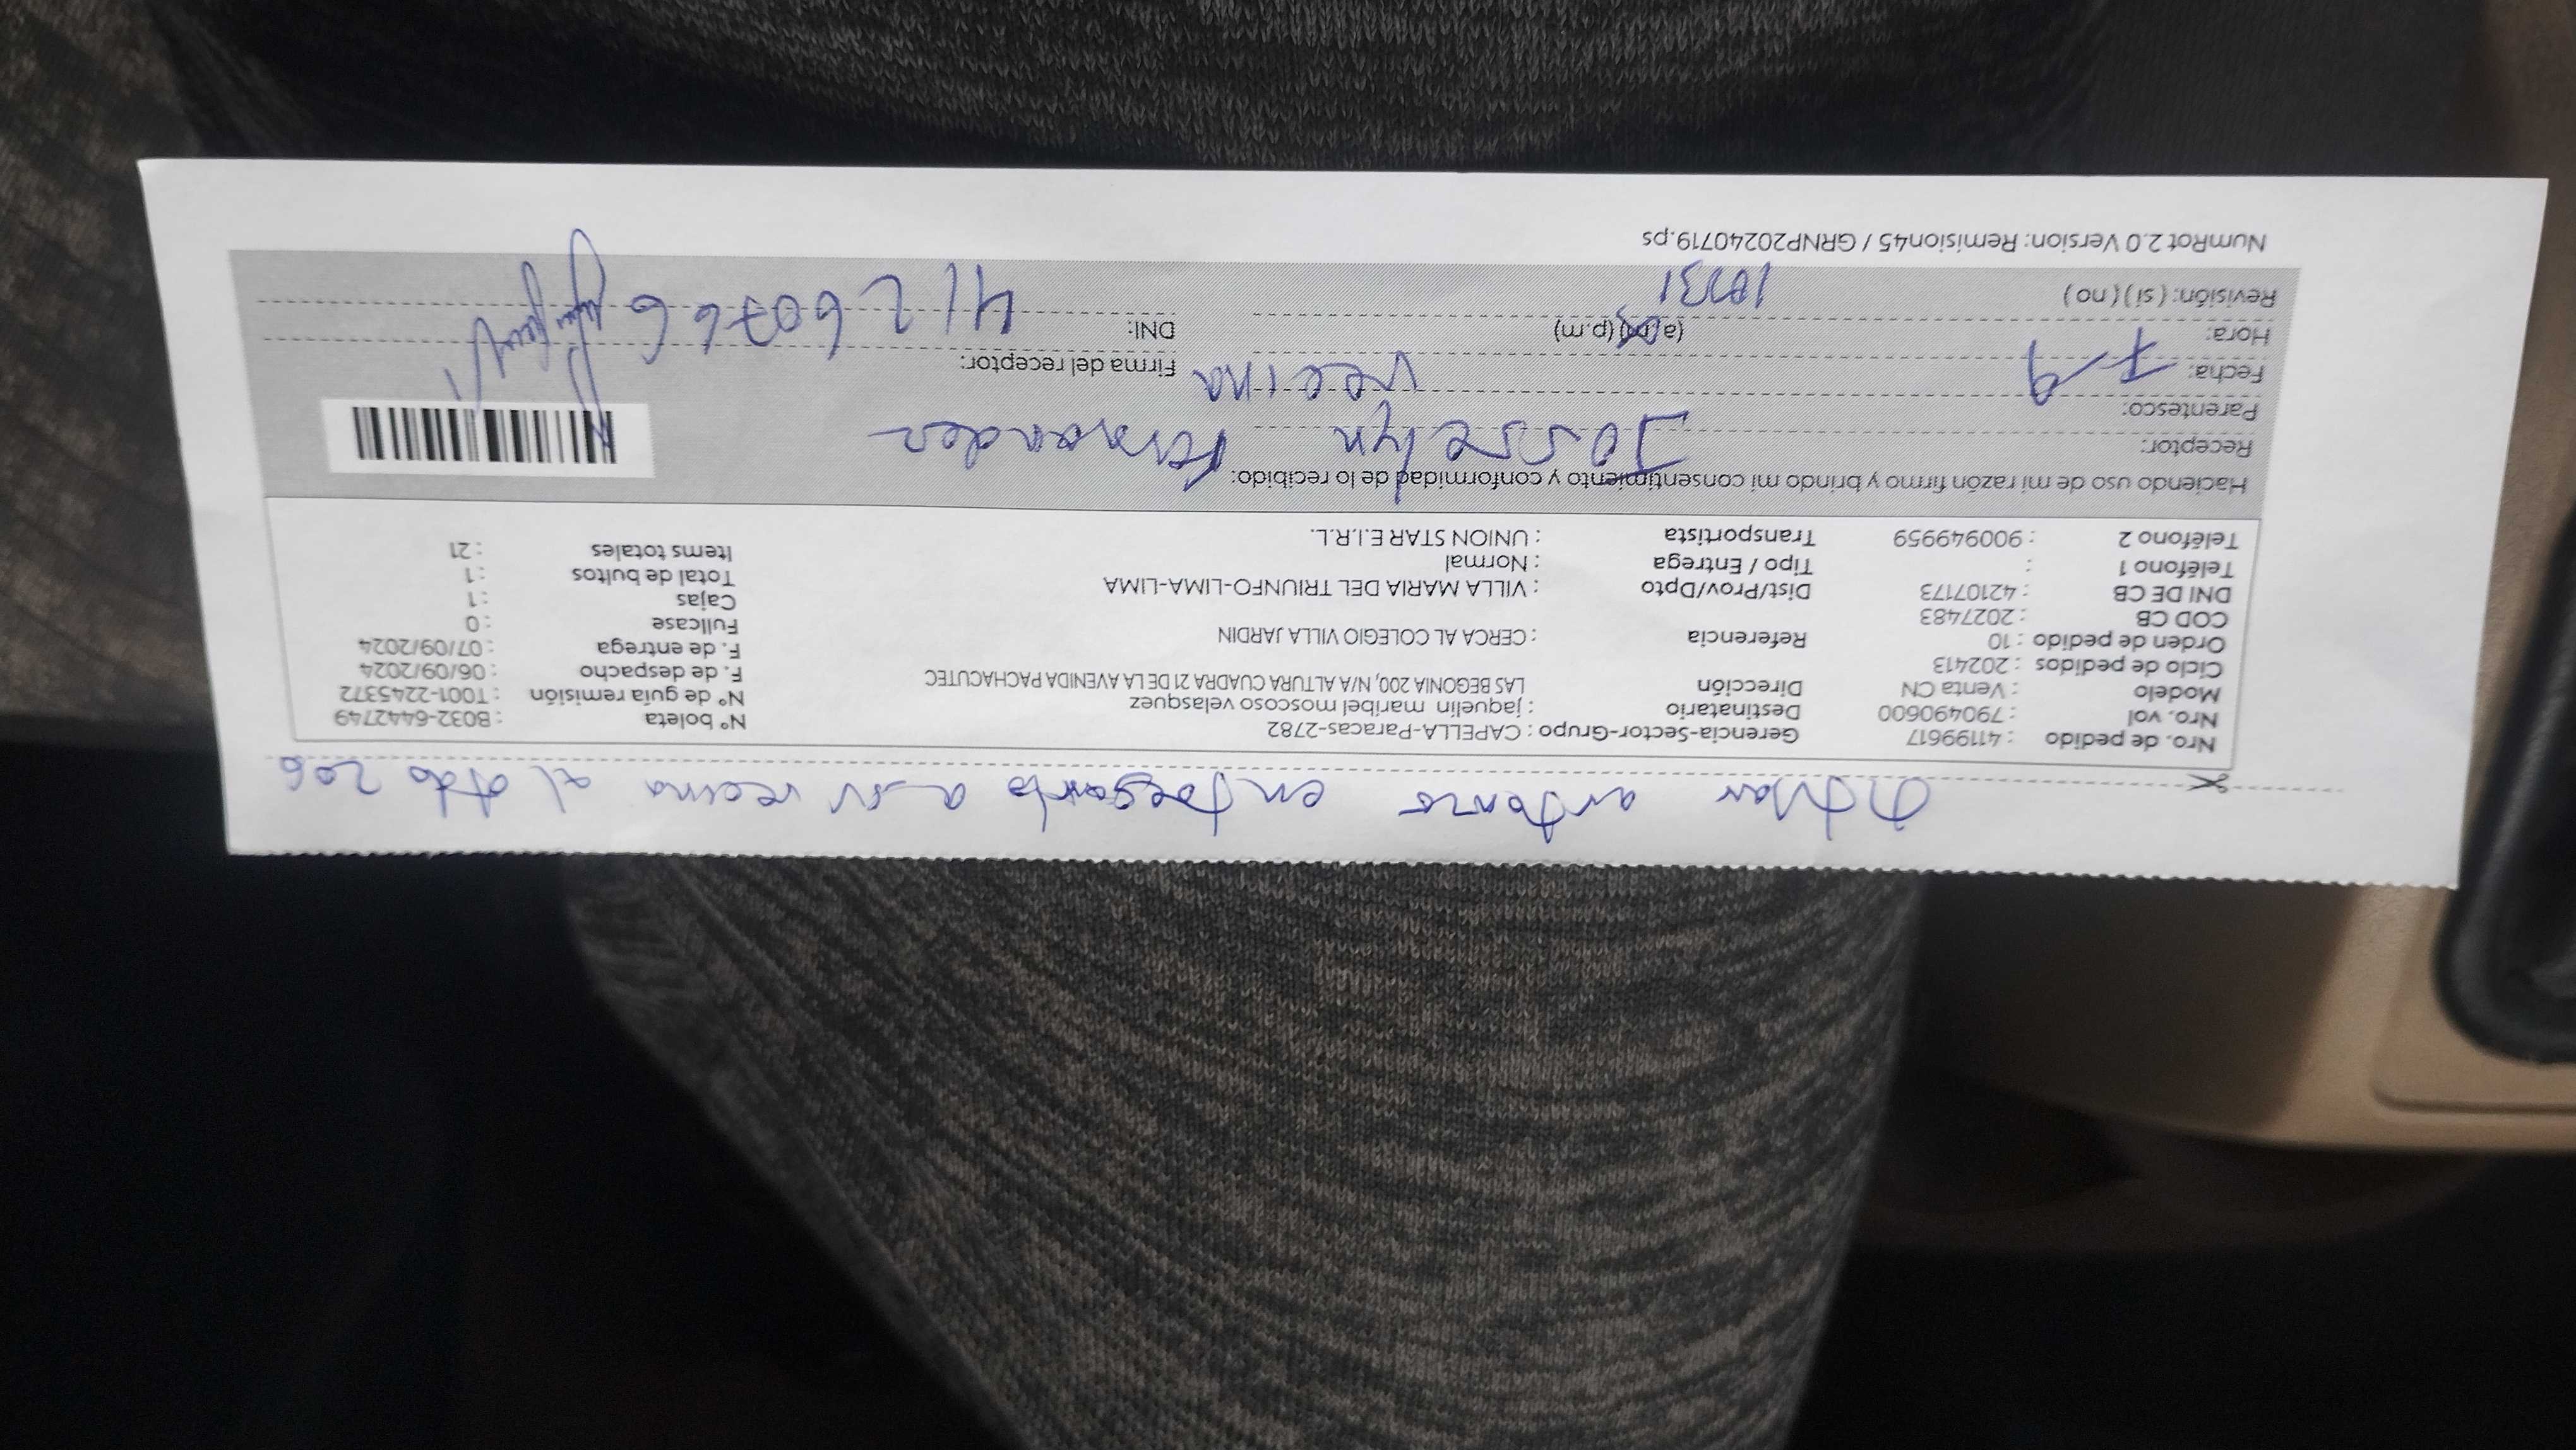 autorizo entregarlo a su vecina al dpto 206
Nro. de pedido : 41199617 Gerencia-Sector-Grupo : CAPELLA-Paracas-2782 N° boleta : B032-6442749
Nro. vol : 790490600 Destinatario : jaquelin maribel moscoso velasquez N° de guía remisión : T001-2245372
Modelo : Venta CN Dirección LAS BEGONIA 200, N/A ALTURA CUADRA 21 DE LA AVENIDA PACHACUTEC F. de despacho : 06/09/2024
Ciclo de pedidos : 202413 F. de entrega : 07/09/2024
Orden de pedido : 10 Referencia : CERCA AL COLEGIO VILLA JARDIN Fullcase : 0
COD CB : 2027483 Cajas : 1
DNI DE CB : 42107173 Dist/Prov/Dpto : VILLA MARIA DEL TRIUNFO-LIMA-LIMA Total de bultos : 1
Teléfono 1 : Tipo / Entrega : Normal Items totales : 21
Teléfono 2 : 900949959 Transportista : UNION STAR E.I.R.L.
Haciendo uso de mi razón firmo y brindo mi consentimiento y conformidad de lo recibido:
Receptor: Josselyn Fernandez
Parentesco: vecina
Fecha: 7-9 Firma del receptor:
Hora: (a.m) (p.m) DNI: 41260766
Revisión: ( si ) ( no )
NumRot 2.0 Version: Remision45 / GRNP20240719.ps